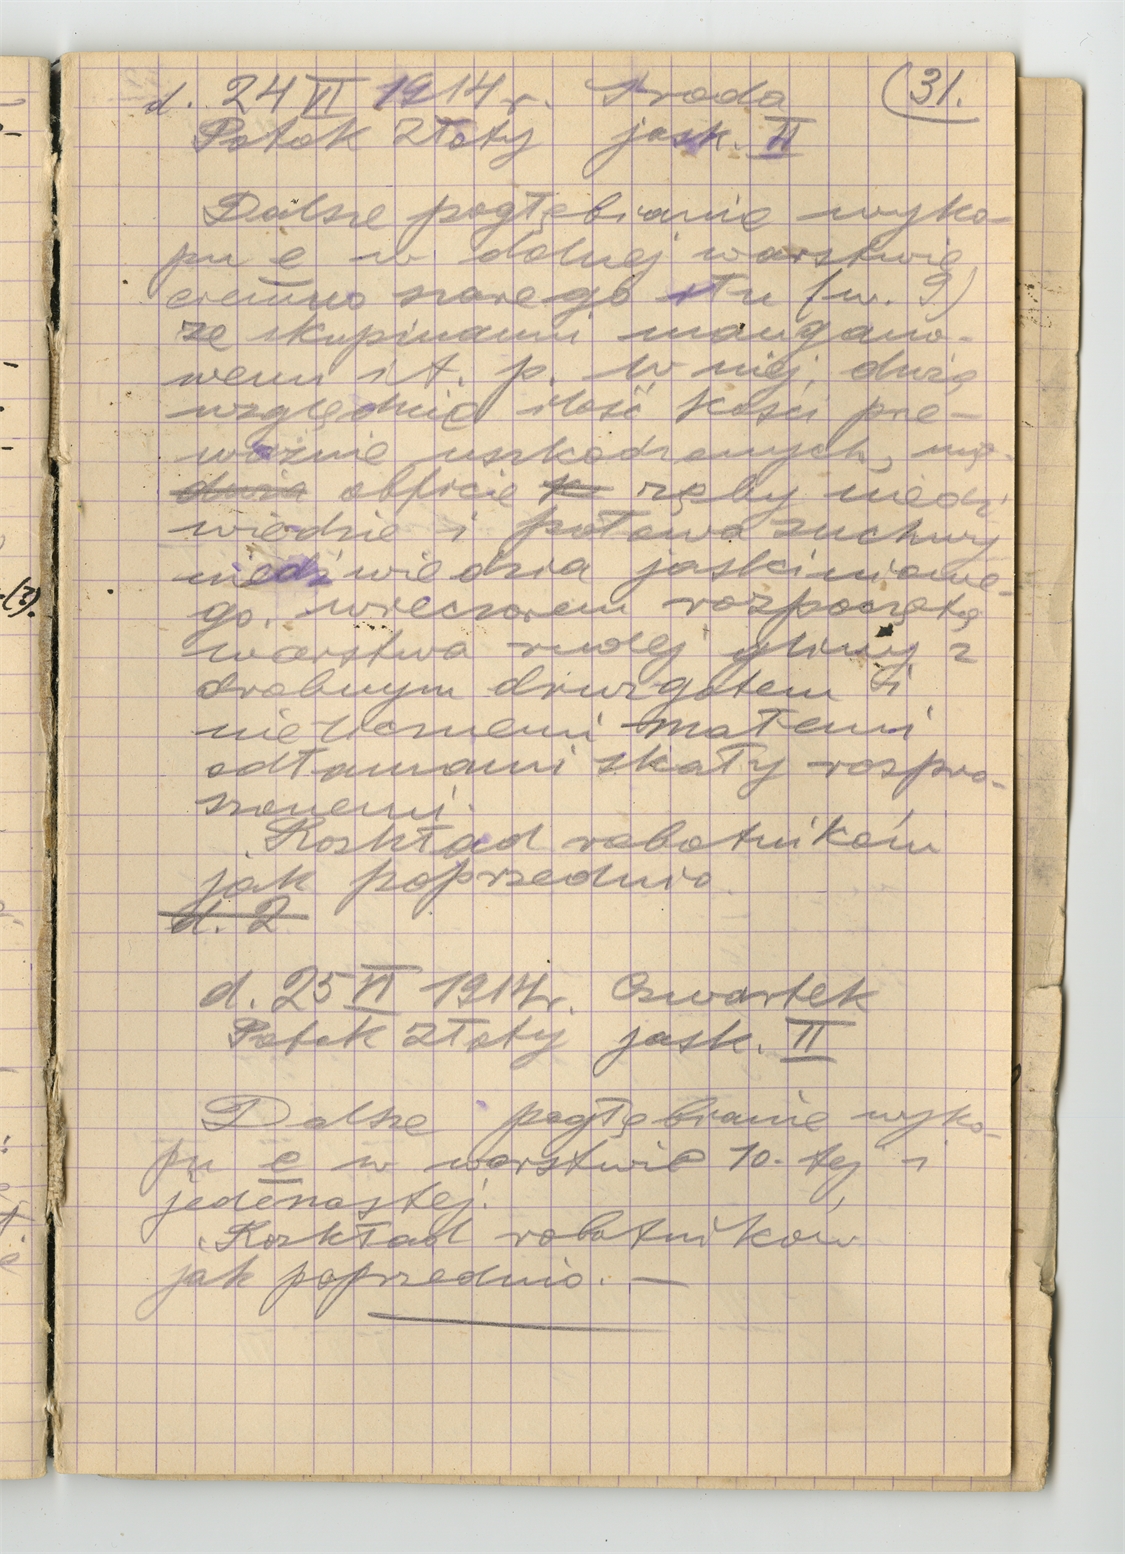 (31.
d. 24 VI 1914 r. Środa
Potok Złoty jask. II
Dalsze pogłębianie wyko-
pu e w dolnej warstwie
ciemno szarego iłu (w. 9)
ze skupinami mangano-
wemi i t. p. W niej, duża
względnie ilość kości prze-
ważnie uszkodzonych,
duża obficie zęby niedź
wiedzie i połowa żuchwy
niedźwiedzia jaskiniowe-
go. wieczorem rozpoczęta
warstwa rudej gliny z
drobnym druzgotem i
nielicznemi małemi
odłamami skały rozpro-
szonemi.
Rozkład robotników
jak poprzednio.
d. 2
d. 25 VI 1914 r. Czwartek
Potok Złoty jask. II
Dalsze pogłębianie wyko-
pu e w warstwie 10-tej i
jedenastej.
Rozkład robotników
jak poprzednio. —